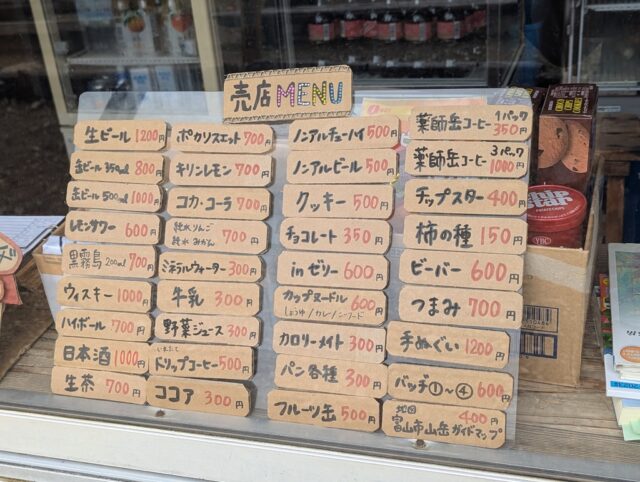 売店MENU
生ビール 1200円
缶ビール 350ml 800円
缶ビール 500ml 1000円
レモンサワー 600円
黒霧島 200ml 700円
ウィスキー 1000円
ハイボール 700円
日本酒 1000円
生茶 700円
ポカリスエット 700円
キリンレモン 700円
コカ・コーラ 700円
純水りんご
純水みかん 700円
ミネラルウォーター 300円
牛乳 300円
野菜ジュース 300円
いれたて
ドリップコーヒー 500円
ココア 300円
ノンアルチューハイ 500円
ノンアルビール 500円
クッキー 500円
チョコレート 350円
inゼリー 600円
カップヌードル 600円
しょうゆ/カレー/シーフード
カロリーメイト 300円
パン各種 300円
フルーツ缶 500円
薬師岳コーヒー 1パック 350円
薬師岳コーヒー 3パック 1000円
チップスター 400円
柿の種 150円
ビーバー 600円
つまみ 700円
手ぬぐい 1200円
バッヂ①〜④ 600円
地図 400円
富山市山岳ガイドマップ
Chip Star
YBC